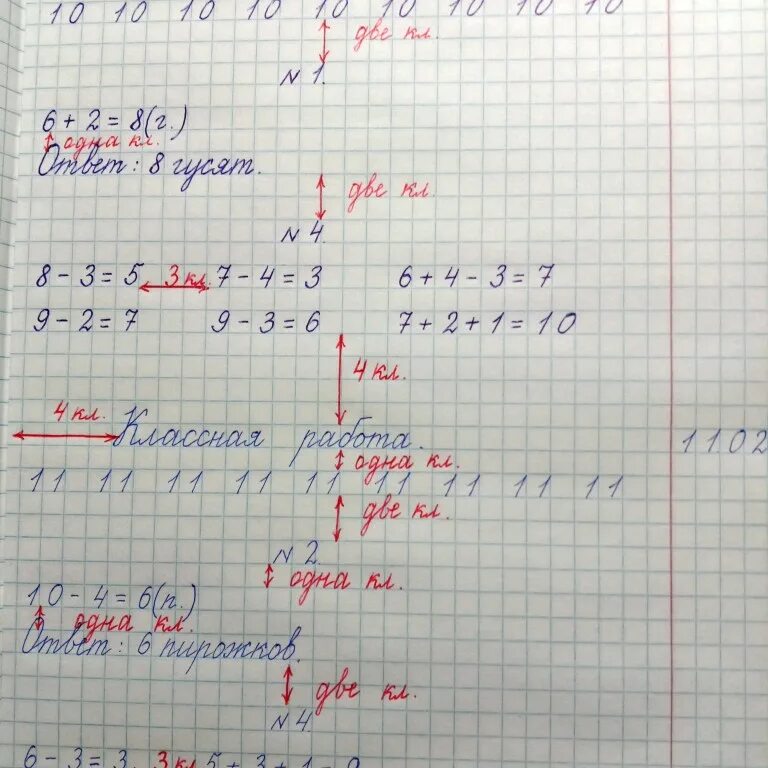 10 10 10 10 10 10 10 10 10
две кл.
№ 1.
6 + 2 = 8 (г.)
одна кл.
Ответ: 8 гусят.
две кл.
№ 4.
8 - 3 = 5 3 кл. 7 - 4 = 3 6 + 4 - 3 = 7
9 - 2 = 7 9 - 3 = 6 7 + 2 + 1 = 10
4 кл.
4 кл.
Классная работа. 1102
одна кл.
11 11 11 11 11 11 11 11 11
две кл.
№ 2.
одна кл.
10 - 4 = 6 (п.)
одна кл.
Ответ: 6 пирожков.
две кл.
№ 4.
6 - 3 = 3. 3 кл. 5 + 3 + 1 = 9